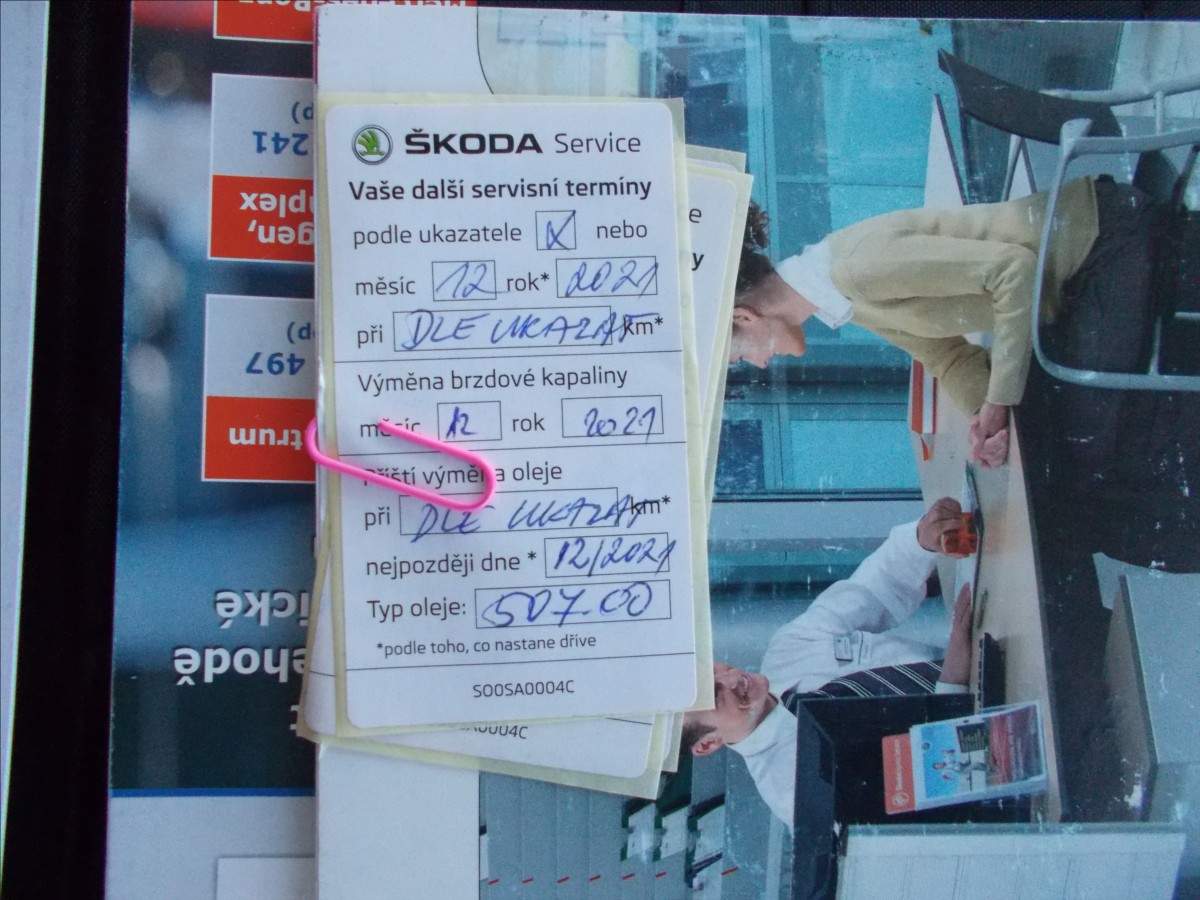 ŠKODA Service
Vaše další servisní termíny
podle ukazatele X nebo
měsíc 12 rok* 2021
při DLE UKAZAT km*
Výměna brzdové kapaliny
měsíc 12 rok 2021
Příští výměna oleje
při DLE UKAZAT km*
nejpozději dne * 12/2021
Typ oleje: 507.00
*podle toho, co nastane dříve
S00SA0004C
e
y
A0004C
241
gen,
plex
497
trum
ické
ehodě